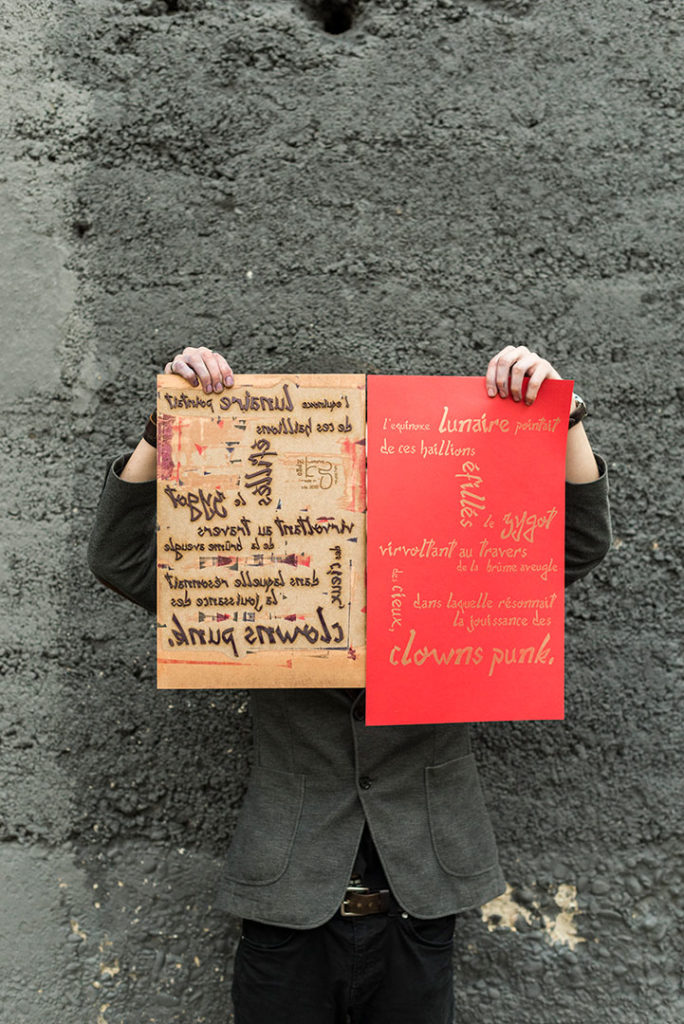 l'equinoxe lunaire pointait
de ces haillions
éfillés
le zygot
virvoltant au travers
de la brûme aveugle
des cieux,
dans laquelle résonnait
la jouissance des
clowns punk.
l'equinoxe lunaire pointait
de ces haillions
éfillés
le zygot
virvoltant au travers
de la brûme aveugle
des cieux,
dans laquelle résonnait
la jouissance des
clowns punk.